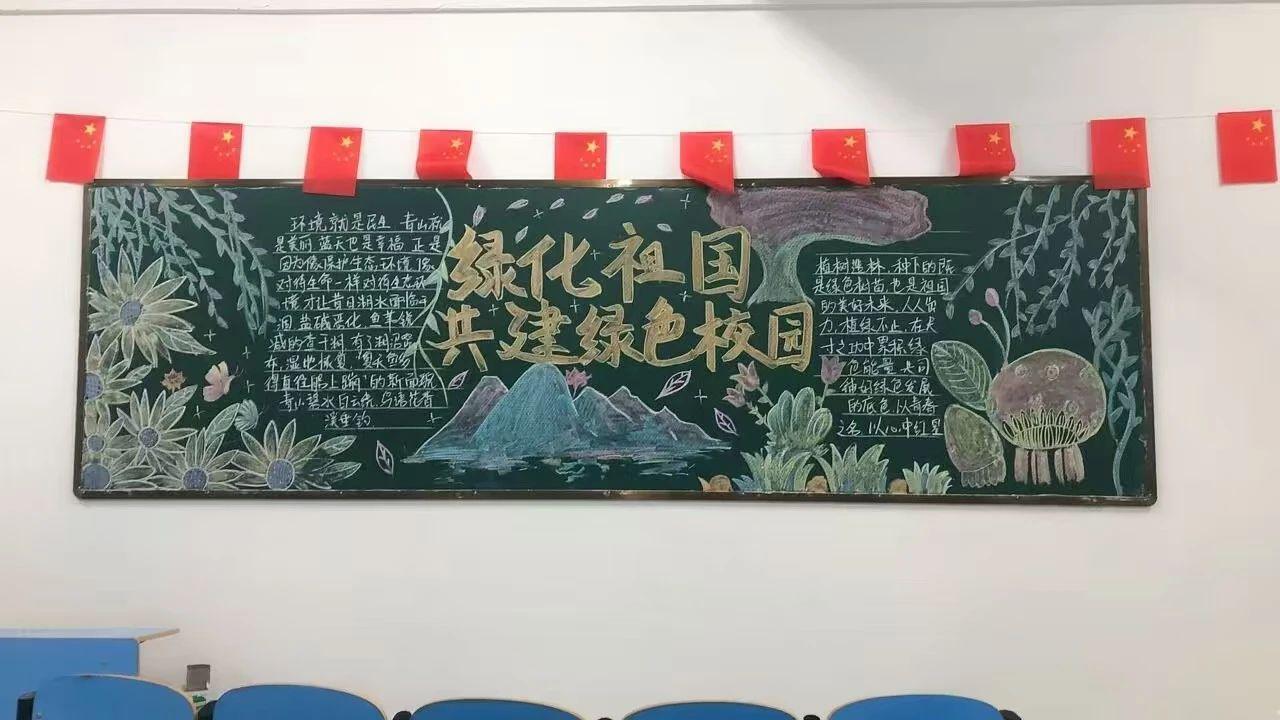 环境就是民生 青山就
是美丽 蓝天也是幸福 正是
因为像保护生态环境 像
对待生命一样对待生态环
境 才让昔日湖水面临干
涸 盐碱恶化 鱼草锐
减的查干湖 有了湖沼
在 湿地恢复
得直往腿上蹦"的新面貌
青山碧水白云
绿化祖国
共建绿色校园
植树造林 种下的既
是绿色树苗 也是祖国
的美好未来 人人出
力 植绿不止 在久
久之功中累积绿
色能量 共同
铺好绿色发展
的底色 以青春
之名 以心中红星